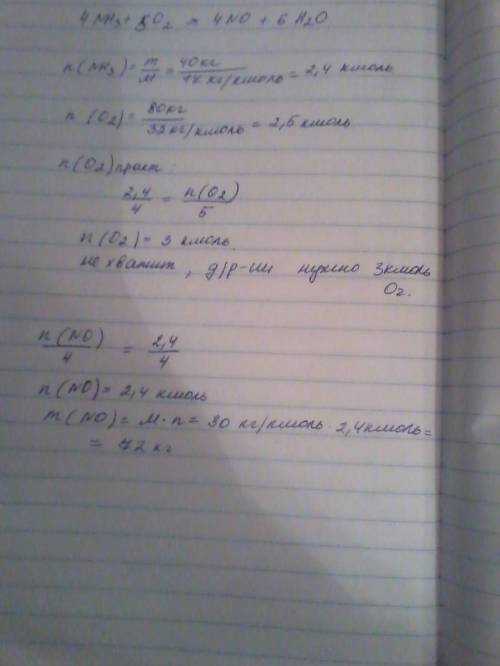 4 NH₃ + 5O₂ = 4NO + 6H₂O
n(NH₃) = m/M = 40кг/17 кг/кмоль = 2,4 кмоль
n(O₂) = 80кг/32кг/кмоль = 2,5 кмоль
n(O₂)практ:
2,4/4 = n(O₂)/5
n(O₂) = 3 кмоль.
не хватит, д/р-ии нужно 3кмоль
O₂.
n(NO)/4 = 2,4/4
n(NO) = 2,4 кмоль
m(NO) = M·n = 30 кг/кмоль · 2,4кмоль =
= 72 кг